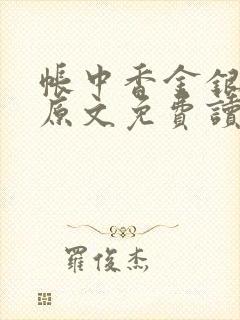 帳中香金銀
原文免費讀
羅俊杰